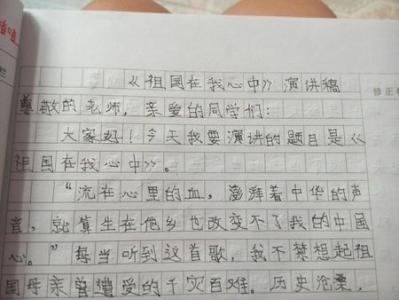 《祖国在我心中》演讲稿
尊敬的老师，亲爱的同学们：
大家好！今天我要演讲的题目是《
祖国在我心中》。
“流在心里的血，澎湃着中华的声
音，就算生在他乡也改变不了我的中国
心。”每当听到这首歌，我不禁想起祖
国母亲曾遭爱的千灾百难，历史沧桑，